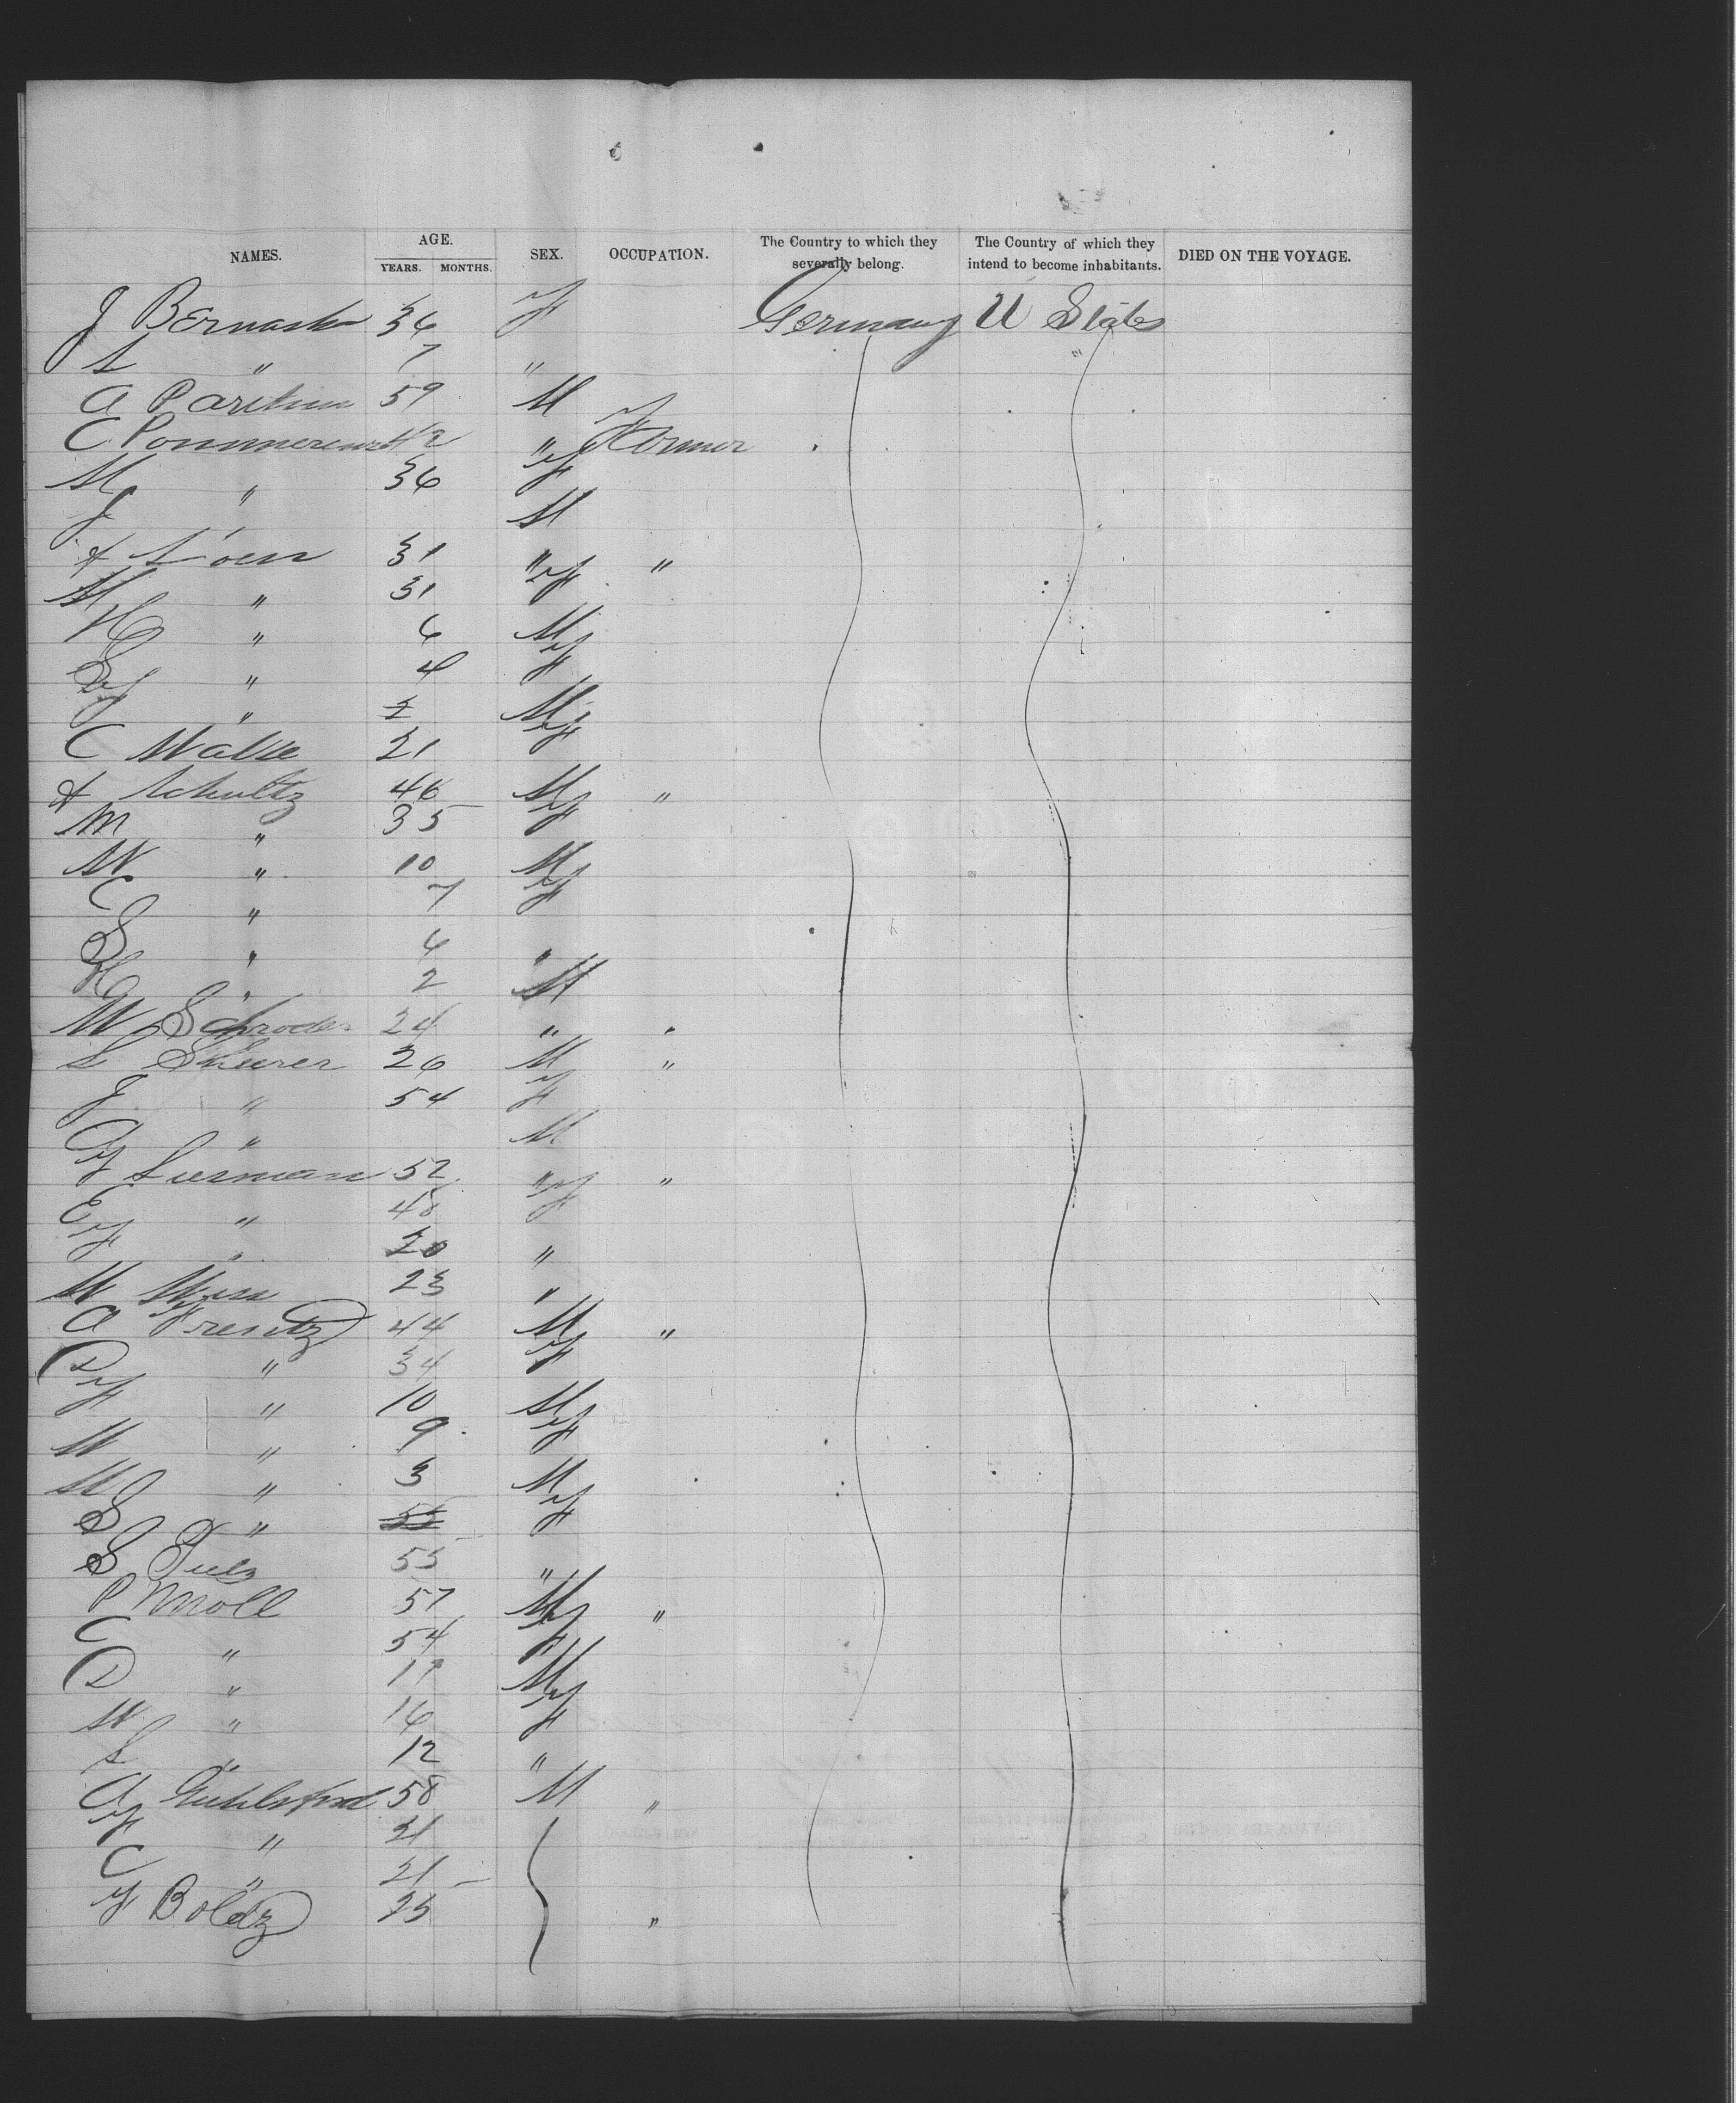 NAMES. AGE. SEX. OCCUPATION. The Country to which they severally belong. The Country of which they intend to become inhabitants. DIED ON THE VOYAGE.
YEARS. MONTHS.
J Bernaski 36 F Germany U States
L " 7 "
A 59 M
C 42 " Farmer
M " 36 F
J " M
31 " "
M " 31 F
H " 6 M
S " 4 F
F " 2 M
C 21 F
A Schultz 46 M "
M " 35 F
W " 10 M
C " 7 F
S " 6 "
H " 2 M
W Schroder 24 " "
L Sheurer 26 M "
J " 54 F
A " M
F Susmann 52 " "
E " 48 F
F " 20 "
W 23 "
A Frentz 44 M "
D " 34 F
F " 10 M
W " 9 F
M " 3 M
S " 55 F
S 55 "
P Knoll 57 M "
C " 54 F
D " 17 M
W " 16 F
L " 12 "
A 58 M "
F " 21
C " 21
F Boldz 25 "